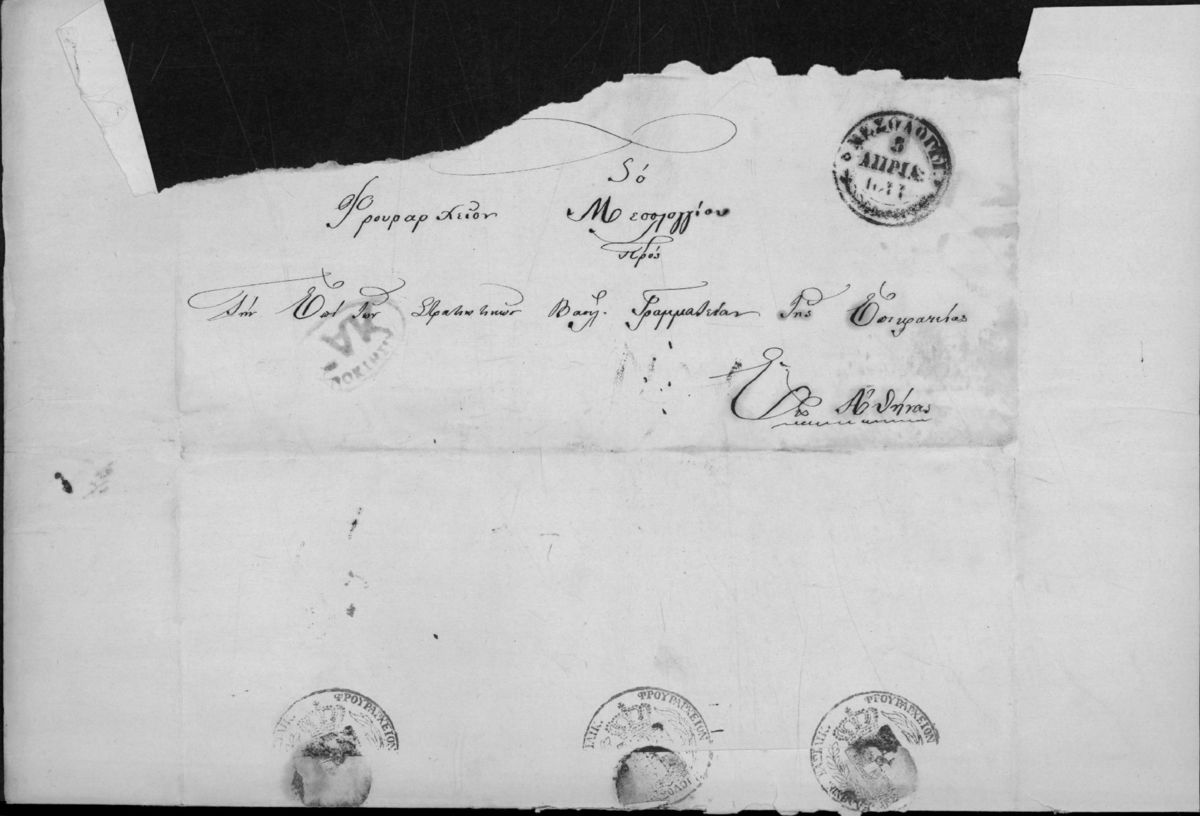 Τό
Φρουραρχεῖον Μεσολογγίου
Πρός
τήν Ἐπί τῶν Στρατιωτικῶν Βασιλ. Γραμματείαν τῆς Ἐπικρατείας
Εἰς Ἀθήνας
ΜΕΣΟΛΟΓΓΙ
8
ΑΠΡΙΛ
ΦΡΟΥΡΑΡΧΕΙΟΝ
ΦΡΟΥΡΑΡΧΕΙΟΝ
ΦΡΟΥΡΑΡΧΕΙΟΝ